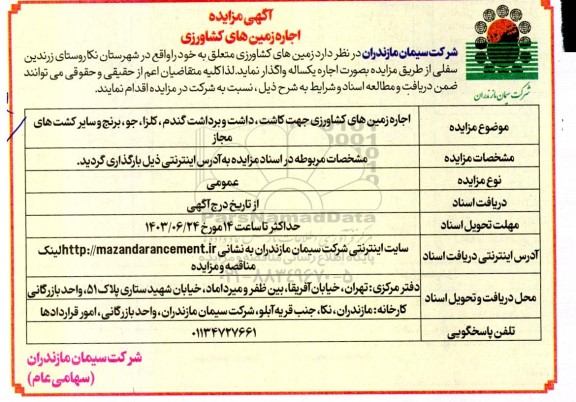 آگهی مزایده
اجاره زمین های کشاورزی
شرکت سیمان مازندران در نظر دارد زمین های کشاورزی متعلق به خود را واقع در شهرستان نکا روستای زرندین
سفلی از طریق مزایده بصورت اجاره یکساله واگذار نماید. لذا کلیه متقاضیان اعم از حقیقی و حقوقی می توانند
ضمن دریافت و مطالعه اسناد و شرایط به شرح ذیل ، نسبت به شرکت در مزایده اقدام نمایند.
شرکت سیمان مازندران
موضوع مزایده
اجاره زمین های کشاورزی جهت کاشت ، داشت و برداشت گندم ، کلزا ، جو ، برنج و سایر کشت های
مجاز
مشخصات مزایده
مشخصات مربوطه در اسناد مزایده به آدرس اینترنتی ذیل بارگذاری گردید.
نوع مزایده
عمومی
دریافت اسناد
از تاریخ درج آگهی
مهلت تحویل اسناد
حداکثر تا ساعت ۱۴ مورخ ۱۴۰۳/۰۶/۲۴
ParsNamadData
آدرس اینترنتی دریافت اسناد
سایت اینترنتی شرکت سیمان مازندران به نشانی http://mazandarancement.ir لینک
مناقصه و مزایده
پایگاه اطلاع رسانی مناقصه و مزایده
۰۲۱-۸۸۳۴۹۶۷۰-۵
محل دریافت و تحویل اسناد
دفتر مرکزی : تهران ، خیابان آفریقا، بین ظفر و میرداماد ، خیابان شهید ستاری پلاک ۵۱، واحد بازرگانی
کارخانه : مازندران ، نکا، جنب قریه آبلو، شرکت سیمان مازندران ، واحد بازرگانی ، امور قراردادها
تلفن پاسخگویی
۰۱۱۳۴۷۲۷۶۶۱
شرکت سیمان مازندران
(سهامی عام)